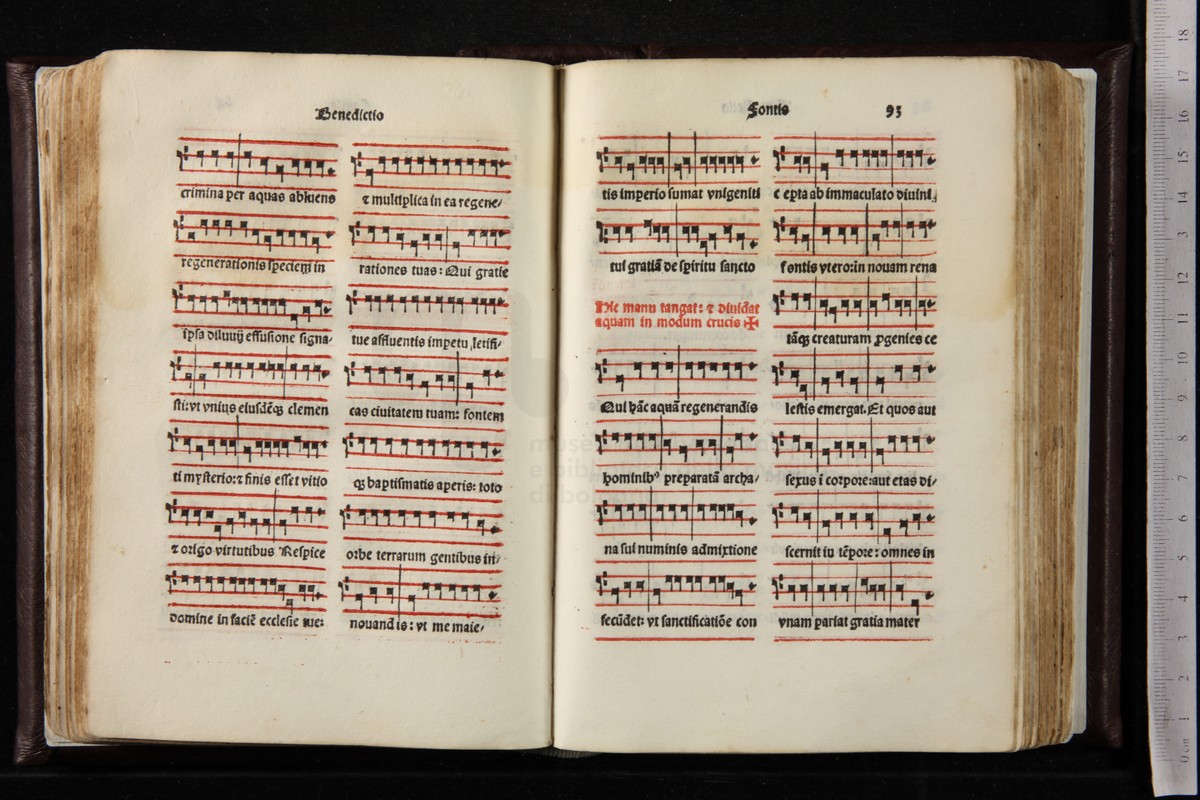 Benedictio
crimina per aquas abluens
regenerationis speciem in
ipsa diluuij effusione signa-
sti: vt vnius eiusdēqȝ clemen
ti mysterio: ⁊ finis esset vitio
⁊ origo virtutibus Respice
domine in faciē ecclesie tue:
⁊ multiplica in ea regene/
rationes tuas: Qui gratie
tue affluentis impetu letifi/
cas ciuitatem tuam: fontem
qȝ baptismatis aperis: toto
orbe terrarum gentibus in/
nouandis: vt me maie/
Fontis 93
tis imperio sumat vnigeniti
tui gratiā de spiritu sancto
Hic manu tangat: ⁊ diuidat
aquam in modum crucis ✠
Qui hāc aquā regenerandis
hominibꝰ preparatā archa/
na sui numinis admixtione
fecūdet: vt sanctificatiōe con
cepta ab immaculato diuini
fontis vtero: in nouam rena
tāqȝ creaturam ꝓgenies ce
lestis emergat. Et quos aut
sexus ī corpore: aut etas di/
scernit in tēpore: omnes in
vnam pariat gratia mater
0 cm 1 2 3 4 5 6 7 8 9 10 11 12 13 14 15 16 17 18